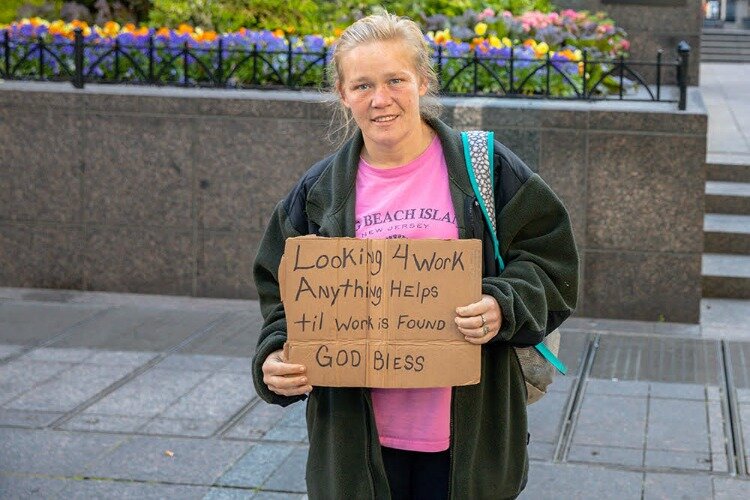 G BEACH ISLAN
NEW JERSEY
Looking 4 Work
Anything Helps
til Work is Found
God Bless